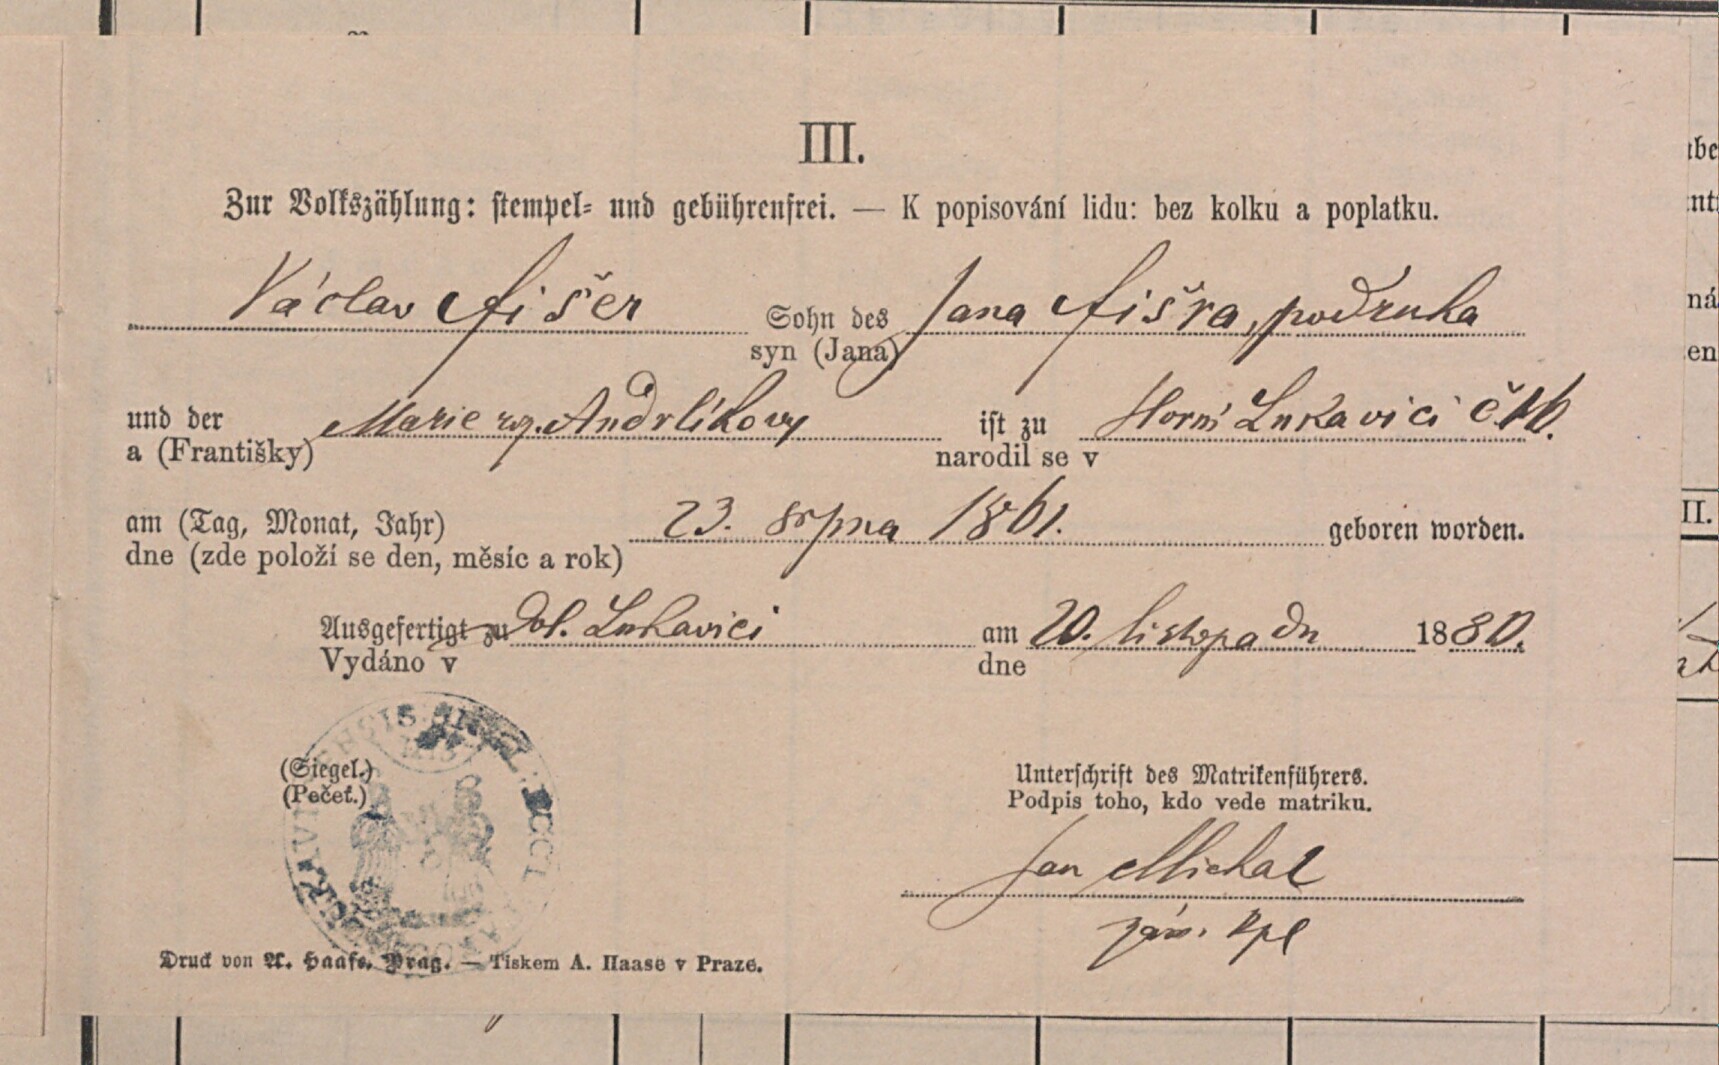 III.
Zur Volkszählung: stempel- und gebührenfrei. — K popisování lidu: bez kolku a poplatku.
Václav Fišer Sohn des Jana Fišra, podruha
syn (Jana)
und der Marie roz. Andrlíkovy ist zu Horní Lukavici č. 16.
a (Františky) narodil se v
am (Tag, Monat, Jahr) 23. srpna 1861. geboren worden.
dne (zde položí se den, měsíc a rok)
Ausgefertigt zu Dol. Lukavici am 20. listopadu 1880.
Vydáno v dne
(Siegel.)
(Pečeť.)
Unterschrift des Matrikenführers.
Podpis toho, kdo vede matriku.
Jan Michal
kpl
Druck von A. Haase, Prag. — Tiskem A. Haase v Praze.
II.